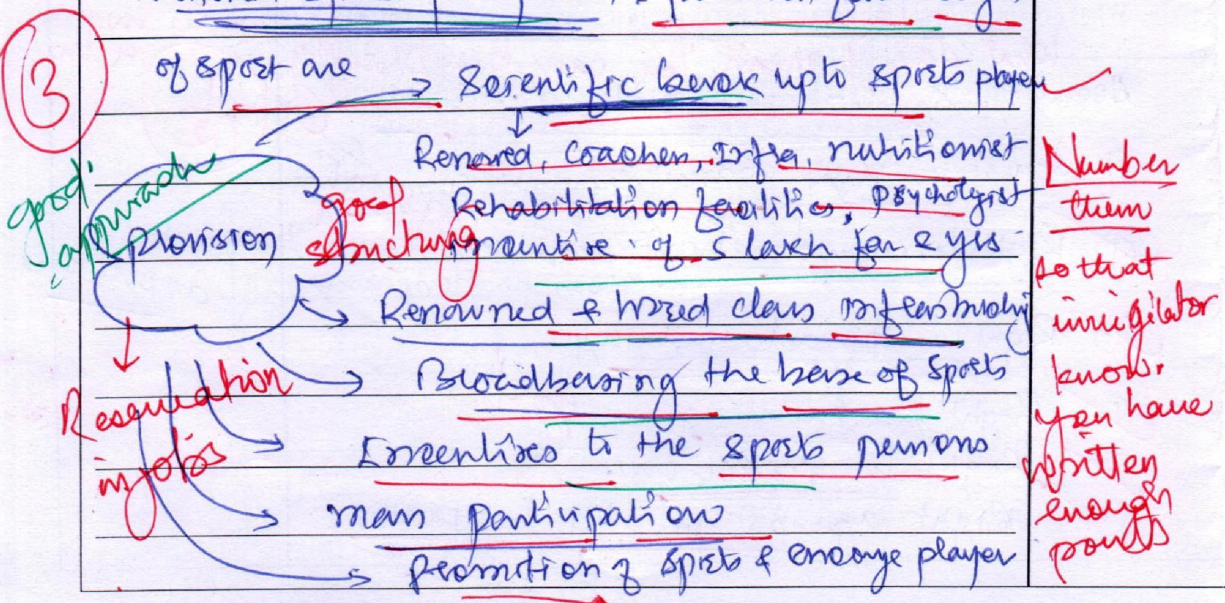 3
of sport are
→ Scientific back up to sports player
Renowed, Coaches, Infra, nutritionist
Rehabilitation facilities, Psychologist
incentive of 5 lakh for 2 yrs
provision
good approach
good structuring
→ Renowned & world class
→ Broadbasing the base of sports
→ Incentives to the sports persons
→ mass participation
→ promotion of sports & encourage player
Reservation
in jobs
Number
them
so that
invigilator
know.
you have
written
enough
points